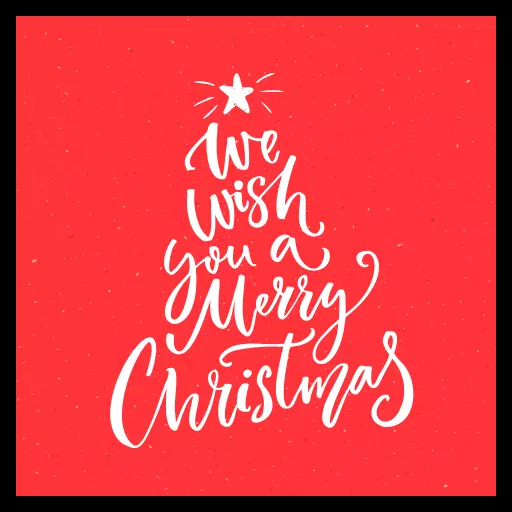 We
wish
you a
Merry
Christmas